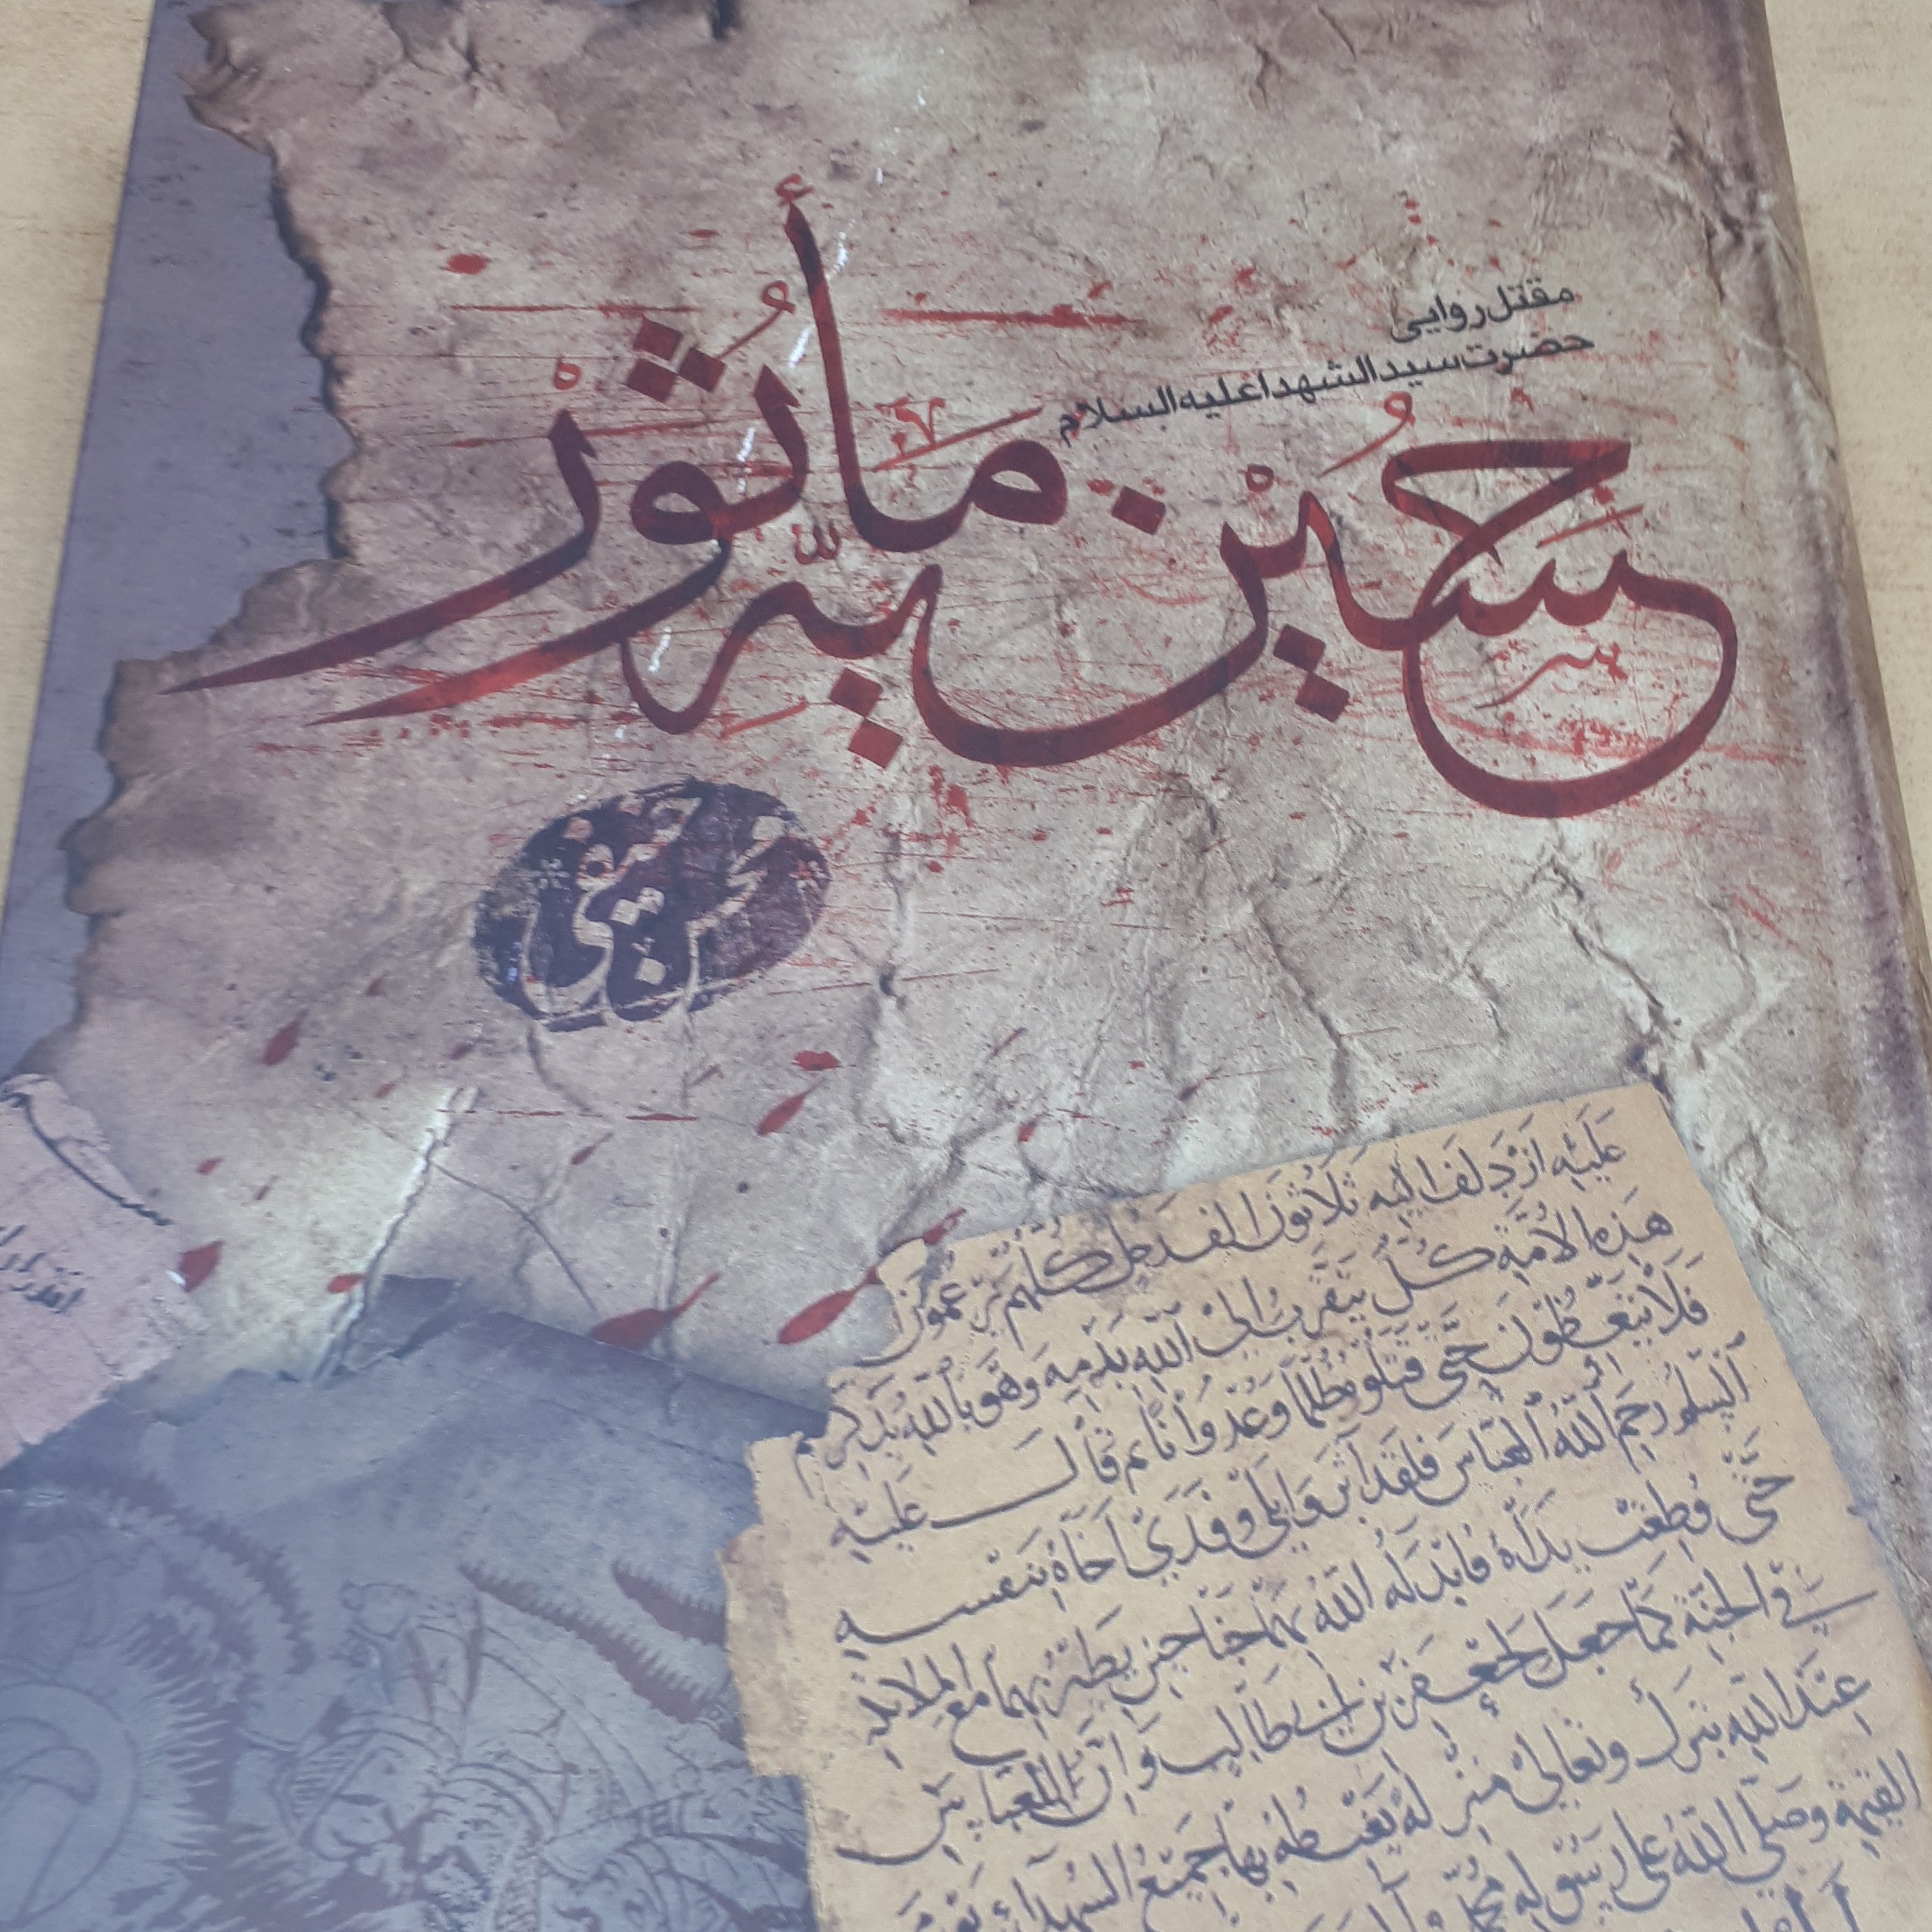 مقتل روایی
حضرت سیدالشهدا علیه السلام
حُسینیّه مأثُورْ
محسن حنیفی
عَلَيْهِ اَزْدَلَفَ اِلَيْهِ ثَلَاثُونَ الف رجل كلهم
هَذِهِ الأُمَّةِ كُلٌّ يَتَقَرَّبُ اِلَى اللّٰهِ بِدَمِهِ وَهُوَ بِاللّٰهِ يُذَكِّرُهُمْ
فَلَا يَتَّعِظُونَ حَتَّى قَتَلُوهُ ظُلْمًا وَعُدْوَانًا ثم قَالَ عَلَيْهِ
السَّلَمُ رَحِمَ اللّٰهُ الْعَبَّاسَ فَلَقَدْ آثَرَ وَابْلَى وَفَدَى اَخَاهُ بِنَفْسِهِ
حَتَّى قُطِعَتْ يَدَاهُ فَابْدَلَهُ اللّٰهُ بِهِمَا جَنَاحَيْنِ يَطِيْرُ بِهِمَا مَعَ الْمَلَائِكَةِ
فِي الْجَنَّةِ كَمَا جَعَلَ لِجَعْفَرَ بْنِ ابِي طَالِبٍ وَاِنَّ لِلْعَبَّاسِ
عِنْدَ اللّٰهِ تَبَارَكَ وَتَعَالَى مَنْزِلَةً يَغْبِطُهُ بِهَا جَمِيْعُ الشُّهَدَآءِ
القيمة وصلى اللّٰه على رَسُولِهِ مُحَمَّدٍ